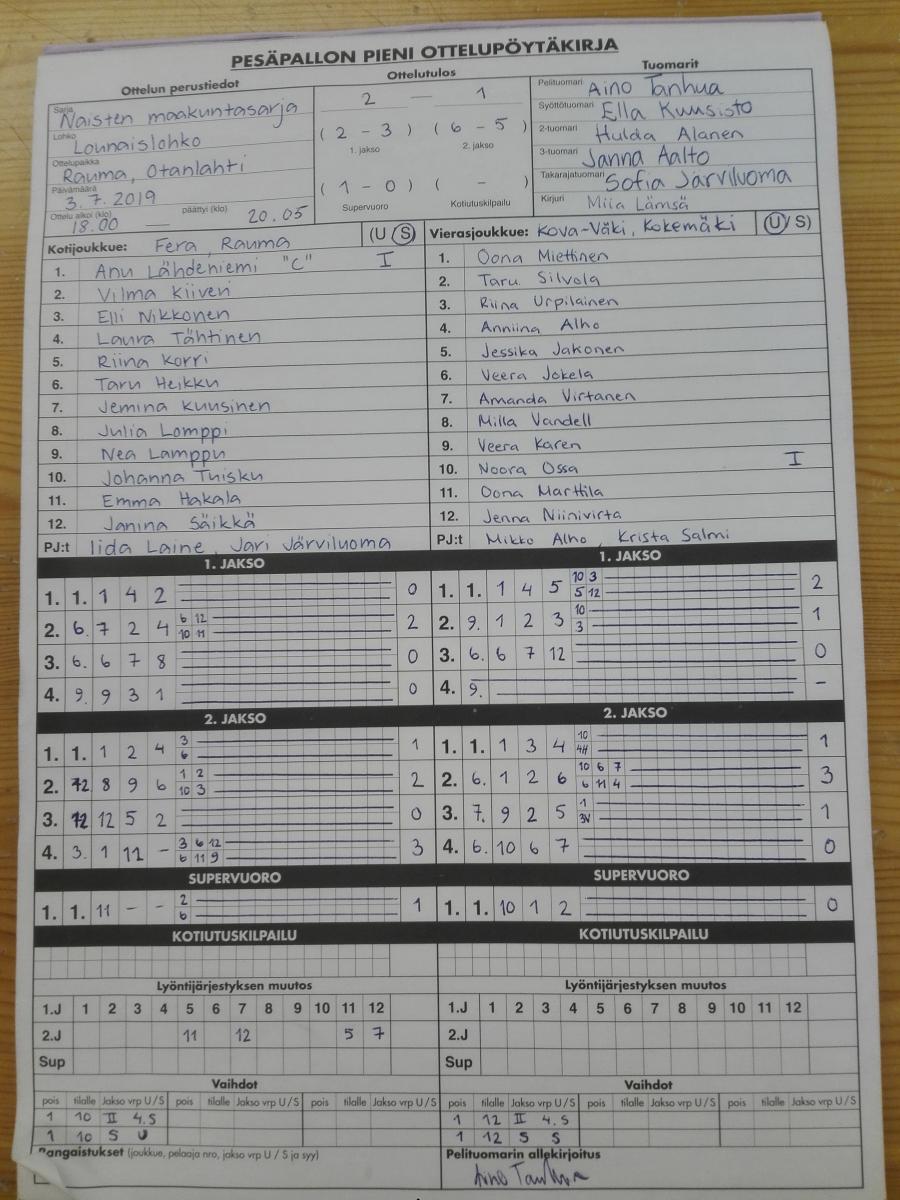 PESÄPALLON PIENI OTTELUPÖYTÄKIRJA
Ottelun perustiedot
Ottelutulos
Tuomarit
Sarja Naisten maakuntasarja
Lohko Lounaislohko
Ottelupaikka Rauma, Otanlahti
Päivämäärä 3.7.2019
Ottelu alkoi (klo) 18.00 — päättyi (klo) 20.05
2 — 1
( 2 - 3 ) ( 6 - 5 )
1. jakso 2. jakso
( 1 - 0 ) ( - )
Supervuoro Kotiutuskilpailu
Pelituomari Aino Tanhua
Syöttötuomari Ella Kuusisto
2-tuomari Hulda Alanen
3-tuomari Janna Aalto
Takarajatuomari Sofia Järviluoma
Kirjuri Miia Lämsä
Kotijoukkue: Fera, Rauma (U S)
1. Anu Lähdeniemi "C" I
2. Vilma Kiiveri
3. Elli Nikkonen
4. Laura Tähtinen
5. Riina Korri
6. Taru Heikku
7. Jemina Kuusinen
8. Julia Lomppi
9. Nea Lamppu
10. Johanna Tuisku
11. Emma Hakala
12. Janina Säikkä
PJ:t Iida Laine, Jari Järviluoma
Vierasjoukkue: Kova-Väki, Kokemäki (U/S)
1. Oona Miettinen
2. Taru Silvola
3. Riina Urpilainen
4. Anniina Alho
5. Jessika Jakonen
6. Veera Jokela
7. Amanda Virtanen
8. Milla Vandell
9. Veera Karen
10. Noora Ossa I
11. Oona Marttila
12. Jenna Niinivirta
PJ:t Mikko Alho, Krista Salmi
1. JAKSO 1. JAKSO
1. 1. 1 4 2 0
2. 6. 7 2 4 6 12 10 11 2
3. 6. 6 7 8 0
4. 9. 9 3 1 0
1. 1. 1 4 5 10 3 5 12 2
2. 9. 1 2 3 10 3 1
3. 6. 6 7 12 0
4. 9. -
2. JAKSO 2. JAKSO
1. 1. 1 2 4 3 6 1
2. 8 9 6 1 2 10 3 2
3. 12 12 5 2 0
4. 3. 1 11 - 3 6 12 6 11 9 3
1. 1. 1 3 4 10 1
2. 6. 1 2 6 10 6 7 6 11 4 3
3. 7. 9 2 5 1 3V 1
4. 6. 10 6 7 0
SUPERVUORO SUPERVUORO
1. 1. 11 - - 2 6 1
1. 1. 10 1 2 0
KOTIUTUSKILPAILU KOTIUTUSKILPAILU
Lyöntijärjestyksen muutos Lyöntijärjestyksen muutos
1.J 1 2 3 4 5 6 7 8 9 10 11 12
2.J 11 12 5 7
Sup
1.J 1 2 3 4 5 6 7 8 9 10 11 12
2.J
Sup
Vaihdot Vaihdot
pois tilalle Jakso vrp U/S pois tilalle Jakso vrp U/S pois tilalle Jakso vrp U/S
1 10 II 4.S
1 10 S U
pois tilalle Jakso vrp U/S pois tilalle Jakso vrp U/S pois tilalle Jakso vrp U/S
1 12 II 4.S
1 12 S S
Rangaistukset (joukkue, pelaaja nro, jakso vrp U / S ja syy)
Pelituomarin allekirjoitus
Aino Tanhua